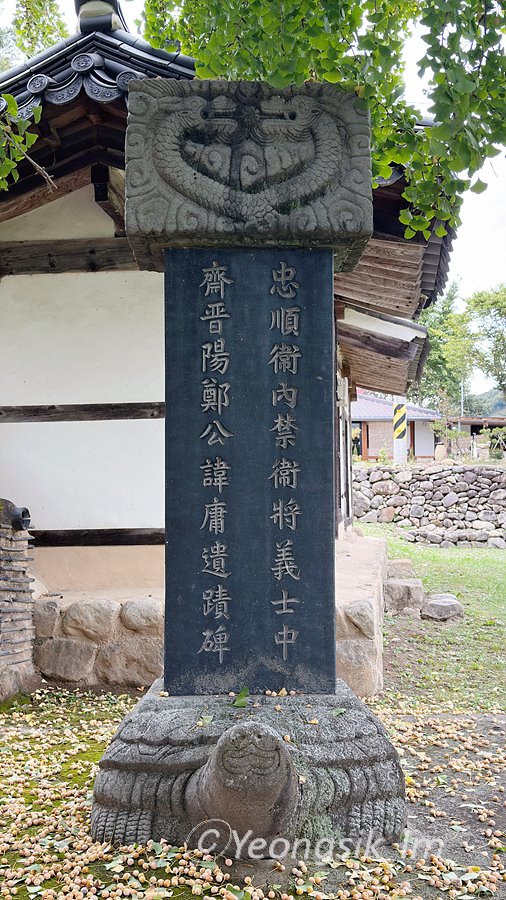 忠順衛內禁衛將義士中
齋晋陽鄭公諱庸遺蹟碑
©Yeongsik Im